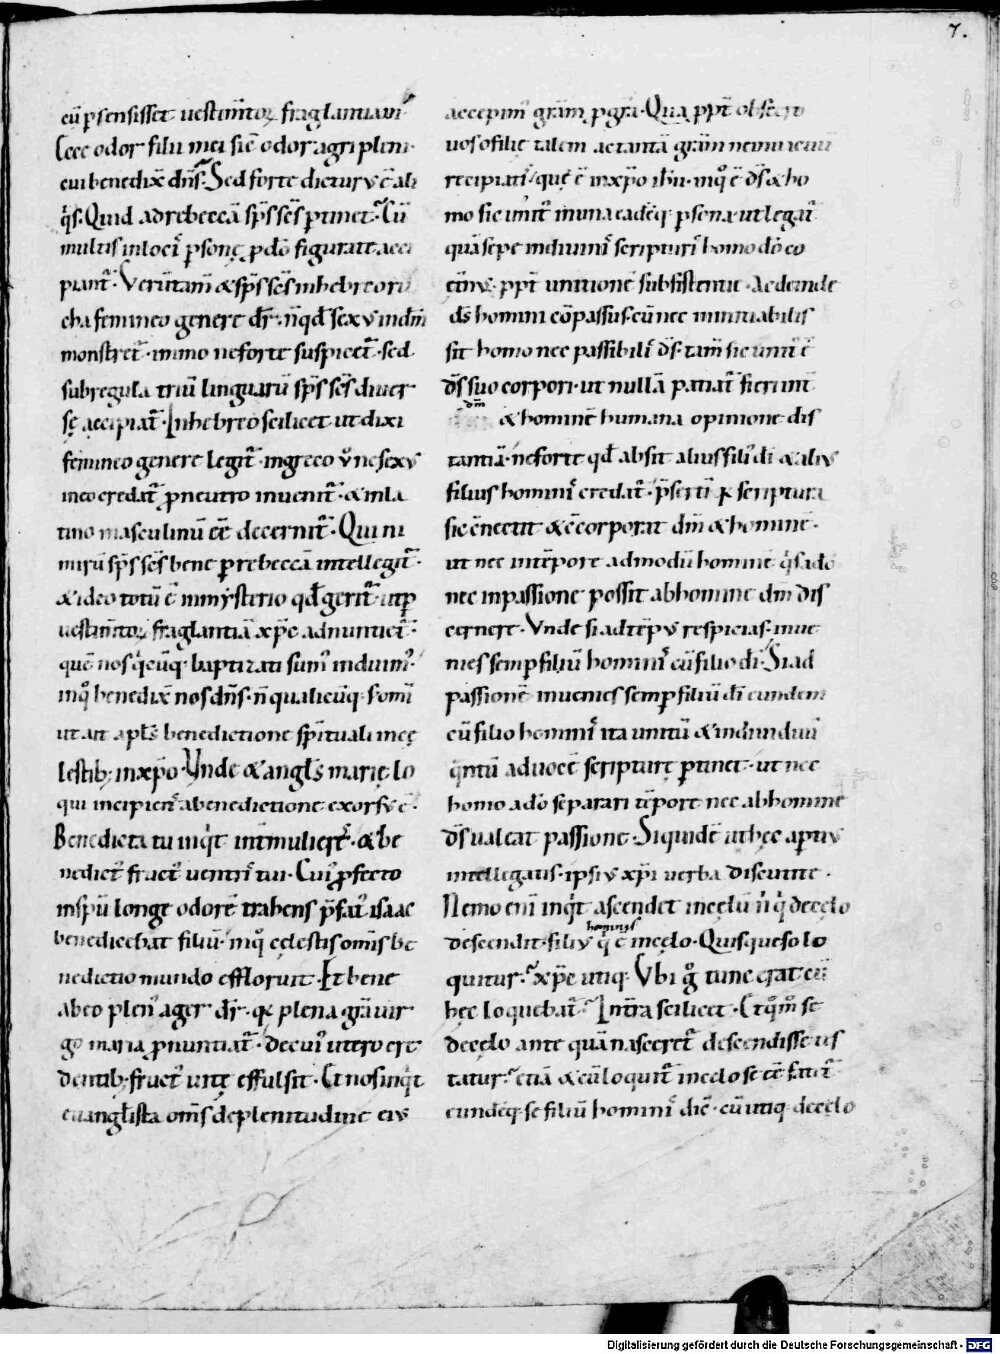 7.
cū p̄sensisset uestim̄toꝝ fraglantiā uī
Ecce odor filii mei sic̄ odor agri pleni·
cui benedix̄ dn̄s· Sed forte dicturus ē ali
q̄s· Quid ad rebeccā sp̄s sc̄s p̄tinet· Cū
multis in loci᷒ p̄sonę p̄ dō figurate acci
piant᷒· Verūtam̄ & sp̄s sc̄s in hebreorū
cha femineo genere dr̄· n̄ qđ sexꝰ inđm̄
monstret᷒· immo ne forte suspicet᷒· sed
sub regula triū linguarū sp̄s sc̄s diuer
sę accipiat᷒· In hebreo scilicet ut dixi
femineo genere legit᷒· in greco v̊ ne sexꝰ
ineo credat᷒ p̄ neutro inuenit᷒· & in la
tino masculinū eē decernit᷒· Qui ni
mirū sp̄s sc̄s bene p̄ rebeccā intellegit᷒·
& ideo totū ē in mysterio qđ gerit᷒ ut p̄
uestim̄toꝝ fraglantiā xp̄c adnuntiet᷒·
quē nos q̄cūq· baptizati sum᷒ induim᷒·
in q̊ benedix̄ nos dn̄s· n̄ qualicūq· s· omī
ut ait apl̄s benedictione sp̄ituali in cę
lestib; in xp̄o· Vnde & angl̄s marię lo
qui incipien᷒ a benedictione exorsꝰ ē·
Benedicta tu inq̄t int̄ mulieres· & be
nedict᷒ fruct᷒ uentri᷒ tui· Cui᷒ p̄fecto
in sp̄u longe odorē trahens p̄fat᷒ isaac
benedicebat filiū· in q̊ cęlestis om̄s be
nedictio mundo effloruit· Et bene
ab eo plen᷒ ager dr̄· q̄ plena gr̄a uir
go maria p̄nuntiat᷒· de cui᷒ utero cre
dentib; fruct᷒ uitę effulsit· Et nos inq̄t
euangl̄ista om̄s de plenitudine eiꝰ
accepim᷒ gr̄am p̄ gr̄a· Qua ppt̄ obsecro
uos o filię talem ac tantā gr̄am ne in uacuū
recipiati᷒· quę ē in xp̄o ih̄u· in q̊ ē dn̄s & ho
mo sic unit᷒ in una eadēq· p̄sona· ut legat᷒
quā sepe in diuini᷒ scripturi᷒ homo dō co
et̄nꝰ· ppt̄ unitionē subsistentię· Ac deinde
ds̄ homini cōpassus· cū nec mutuabilis
sit homo nec passibili᷒ ds̄· tam̄ sic unit᷒ ē
ds̄ suo corpori· ut nullā patiat᷒ fieri int̄
dm̄
& hominē humana opinione dis
tantiā· ne forte qđ absit alius fili᷒ dī & aliꝰ
filius homini᷒ credat᷒· p̄serti᷒ q̄ scriptura
sic c̄nectit & c̄corporat dm̄ & hominē·
ut nec in tēpore ad modū hominē q̄s a dō
nec in passione possit ab homine dm̄ dis
cernere· Vnde si ad tēpꝰ respicias· inue
nies semp filiū homini᷒ cū filio dī· Si ad
passionē inuenies semp filiū dī eundem
cū filio homini᷒ ita unitū & indiuiduū
q̄ntū ad uocē scripturę p̄tinet· ut nec
homo a dō separari tēpore nec ab homine
ds̄ ualeat passione· Siquidē ut hęc aptiꝰ
intellegatis· ipsiꝰ xp̄i uerba discutite·
Nemo enī inq̄t ascendet in cęlū n̄ q̄ de cęlo
hominis
descendit· filiꝰ q̄ ē in cęlo· Quis quęso lo
quitur· xp̄c utiq· Vbi g̊ tunc erat cū
hęc loquebat᷒· In tr̄a scilicet· Et q̊m̊ se
de cęlo ante quā nasceret᷒ descendisse tes
tatur· etiā & cū loquit᷒ in cęlo se eē fatet᷒
eundēq· se filiū homini᷒ dic̄· cū utiq· de cęlo
Digitalisierung gefördert durch die Deutsche Forschungsgemeinschaft - DFG